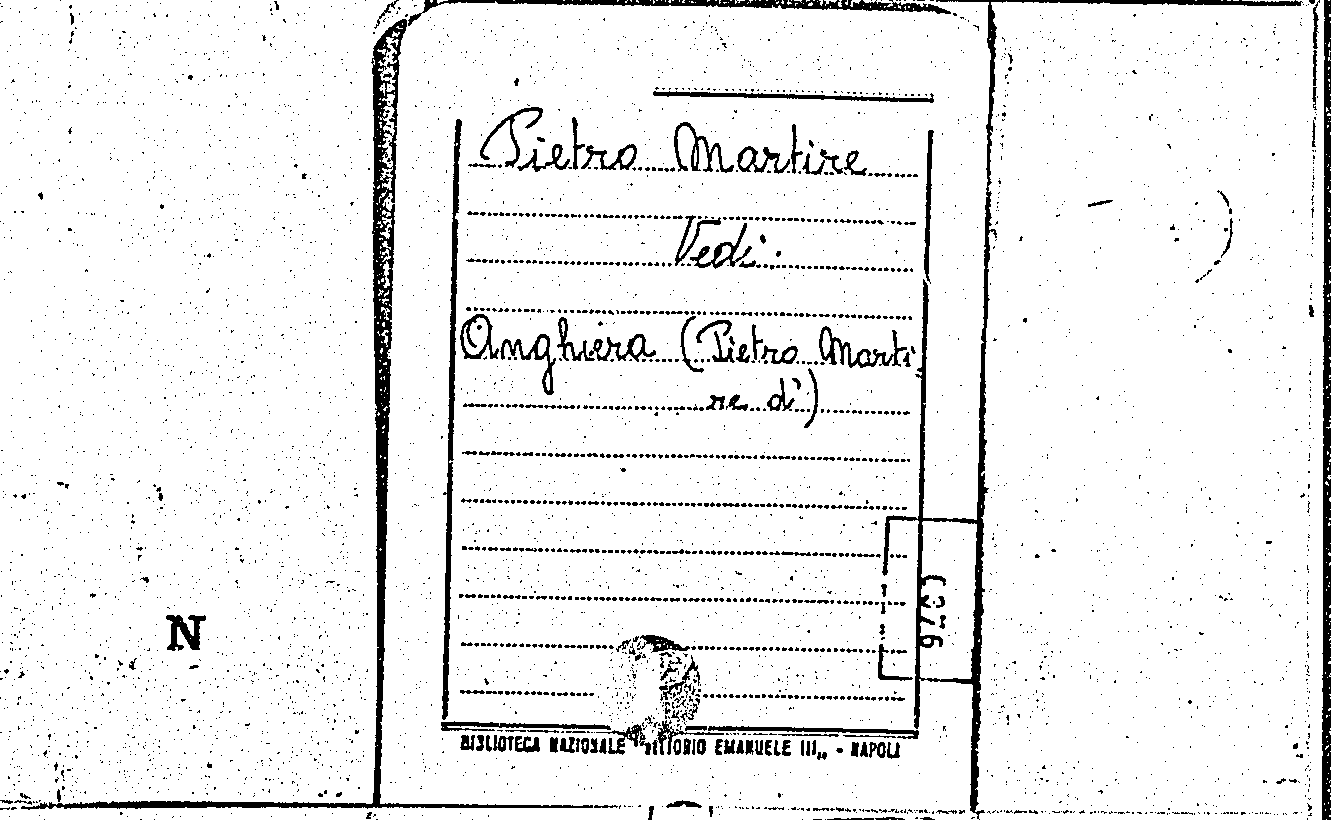 Pietro Martire
Vedi:
Anghiera (Pietro Marti
re di)
N
BIBLIOTECA NAZIONALE "VITTORIO EMANUELE III„ - NAPOLI